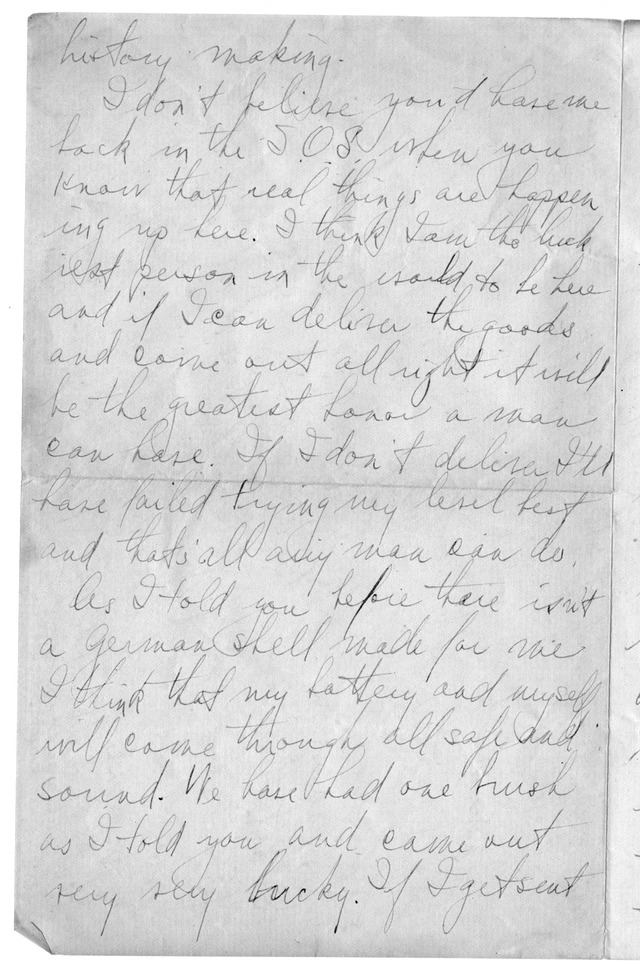 history making.
I don't believe you'd have me
back in the S.O.S. when you
know that real things are happen
ing up here. I think I am the luck
iest person in the world to be here
and if I can deliver the goods
and come out all right it will
be the greatest honor a man
can have. If I don't deliver I'll
have failed trying my level best
and that's all any man can do.
As I told you before there isn't
a german shell made for me
I think that my battery and myself
will come through all safe and
sound. We have had one brush
as I told you and came out
very very lucky. If I get sent